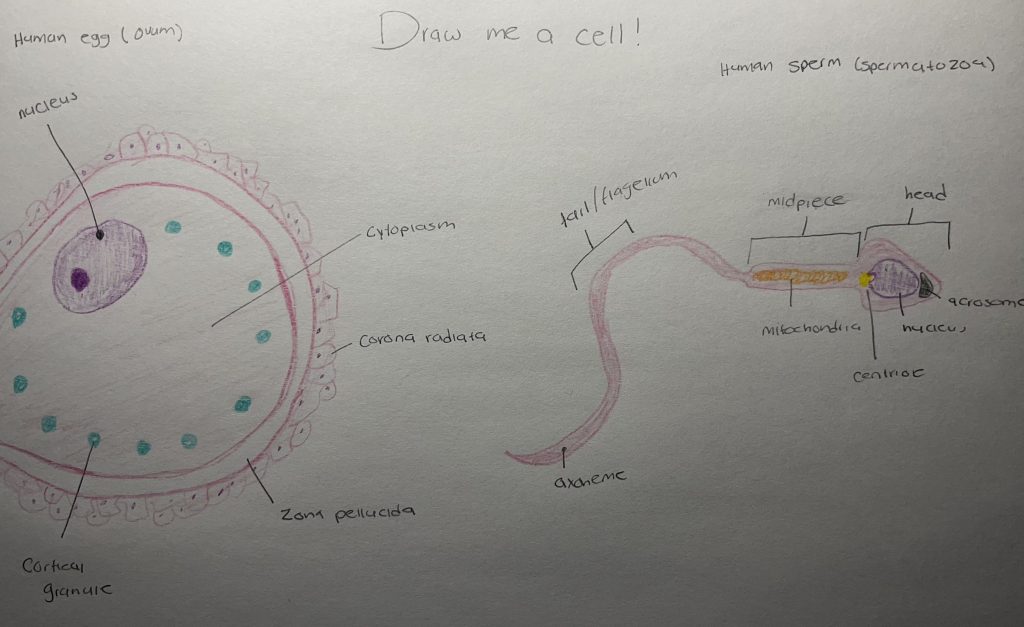 Draw me a cell!
Human egg (ovum)
nucleus
Cytoplasm
Corona radiata
Zona pellucida
Cortical
granule
Human sperm (spermatozoa)
tail/flagellum
midpiece
head
mitochondria
acrosome
nucleus
centriole
axoneme